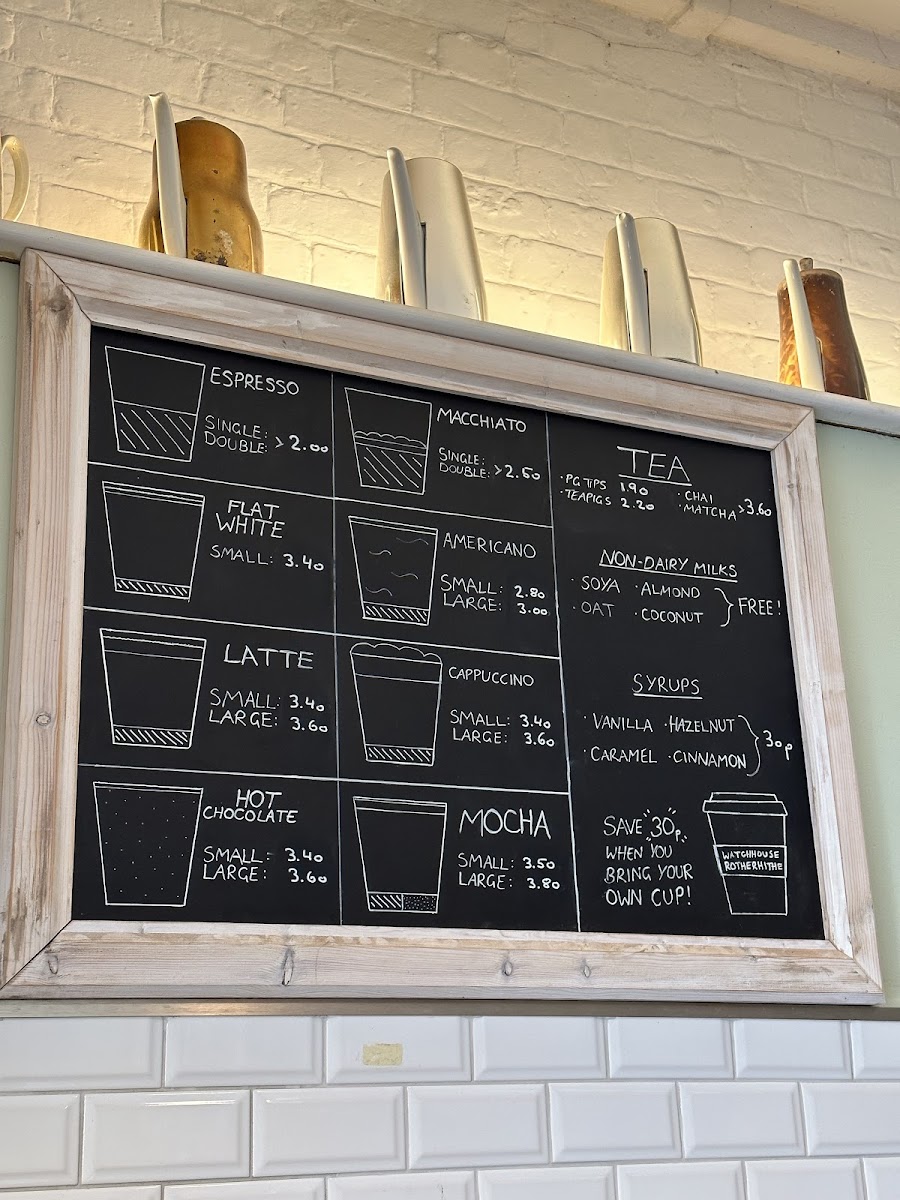 ESPRESSO
SINGLE:
DOUBLE: > 2.00
MACCHIATO
SINGLE:
DOUBLE: > 2.50
FLAT
WHITE
SMALL: 3.40
AMERICANO
SMALL: 2.80
LARGE: 3.00
LATTE
SMALL: 3.40
LARGE: 3.60
CAPPUCCINO
SMALL: 3.40
LARGE: 3.60
HOT
CHOCOLATE
SMALL: 3.40
LARGE: 3.60
MOCHA
SMALL: 3.50
LARGE: 3.80
TEA
· PG TIPS 1.90
· TEAPIGS 2.20
· CHAI
· MATCHA > 3.60
NON-DAIRY MILKS
· SOYA · ALMOND
· OAT · COCONUT } FREE!
SYRUPS
· VANILLA · HAZELNUT
· CARAMEL · CINNAMON } 30p
SAVE 30p
WHEN YOU
BRING YOUR
OWN CUP!
WATCHHOUSE
ROTHERHITHE